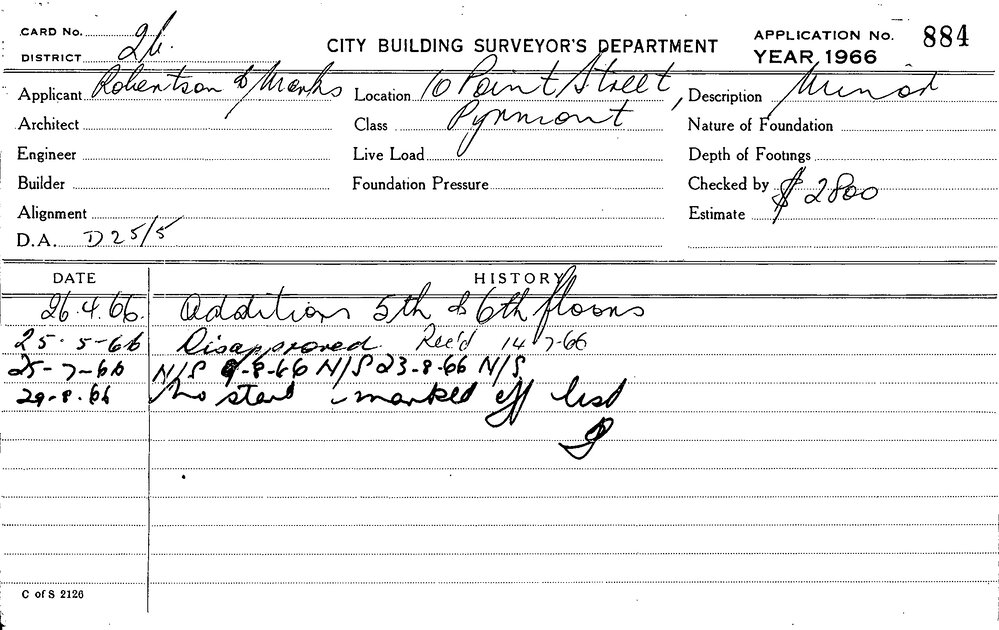 CARD No.
DISTRICT 26.
CITY BUILDING SURVEYOR'S DEPARTMENT
APPLICATION No. 884
YEAR 1966
Applicant Robertson & Marks
Location 10 Point Street,
Description Minor
Architect
Class Pyrmont
Nature of Foundation
Engineer
Live Load
Depth of Footings
Builder
Foundation Pressure
Checked by
Alignment
Estimate $2800
D.A. D 25/5
DATE HISTORY
26.4.66. Additions 5th & 6th floors
25.5-66 Disapproved. Rec'd 14-7-66
25-7-66 N/S 9-8-66 N/S 23-8-66 N/S
29.8.66 No start - marked off list
C of S 2126